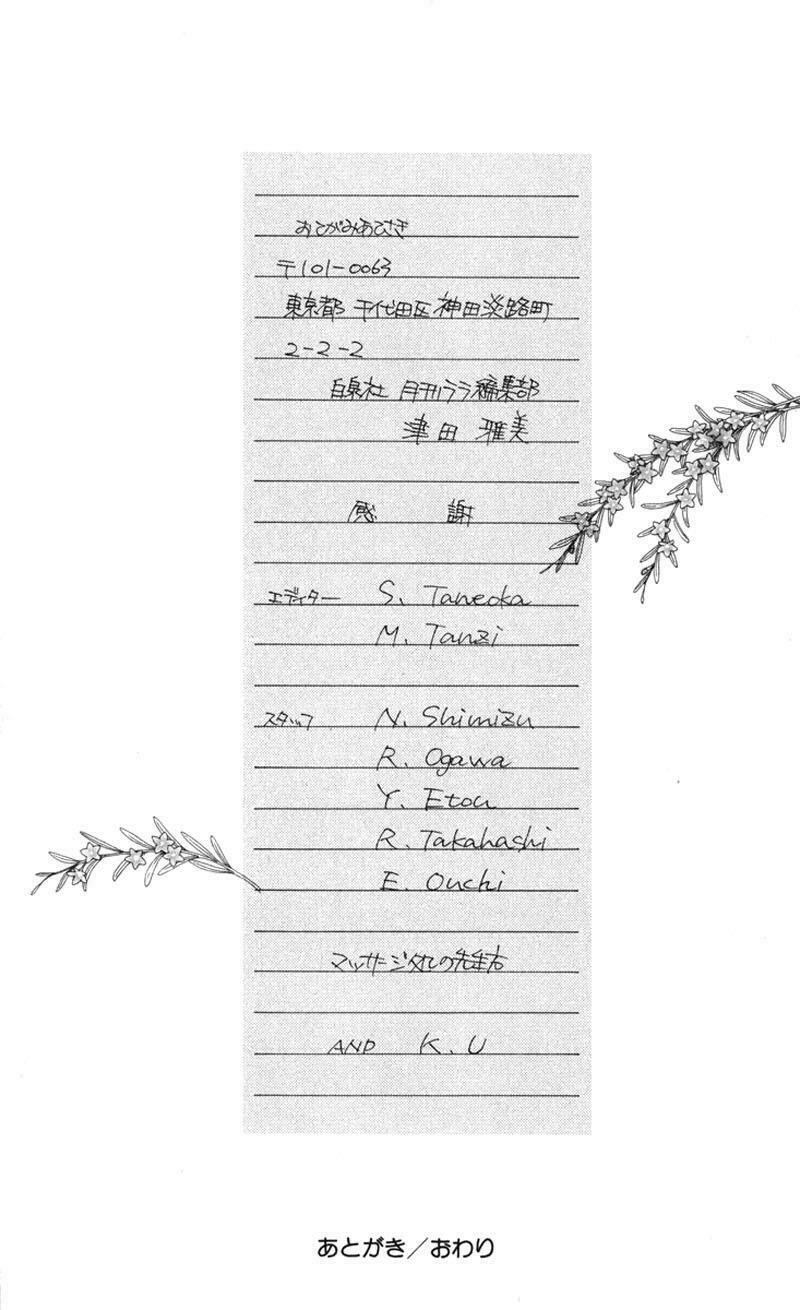 おてがみあてさき
〒101-0063
東京都 千代田区 神田淡路町
2-2-2
白泉社 月刊ララ編集部
津田 雅美
感 謝
エディター S. Taneoka
M. Tanzi
スタッフ N. Shimizu
R. Ogawa
Y. Etou
R. Takahashi
E. Ouchi
マッサージ の先生方
AND K.U
あとがき/おわり